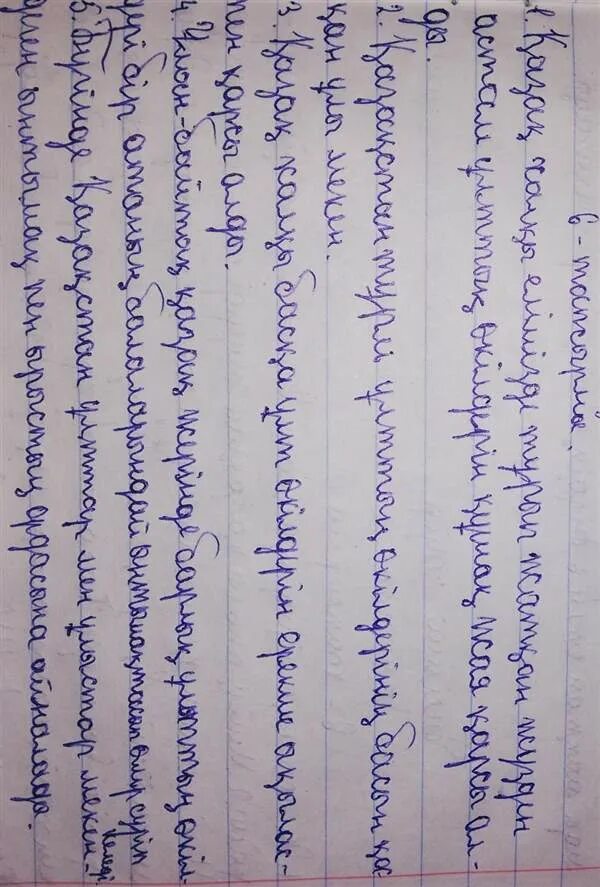 6 - тапсырма.
1. Қазақ халқы елімізде тұрып жатқан жүзден
астам ұлттың өкілдерін құшақ жая қарсы ал-
ды.
2. Қазақстан түрлі ұлттың өкілдерінің басын қос-
қан ұлы мекен.
3. Қазақ халқы басқа ұлт өкілдерін ерекше ықылас-
пен қарсы алды.
4. Ұлан-байтақ қазақ жерінде барлық ұлттың өкіл-
дері бір атаның балаларындай ынтымақтасып өмір сүріп
келеді.
5. Бүгінде Қазақстан ұлттар мен ұлыстар мекен-
деген ынтымақ пен ырыстың ордасына айналады.